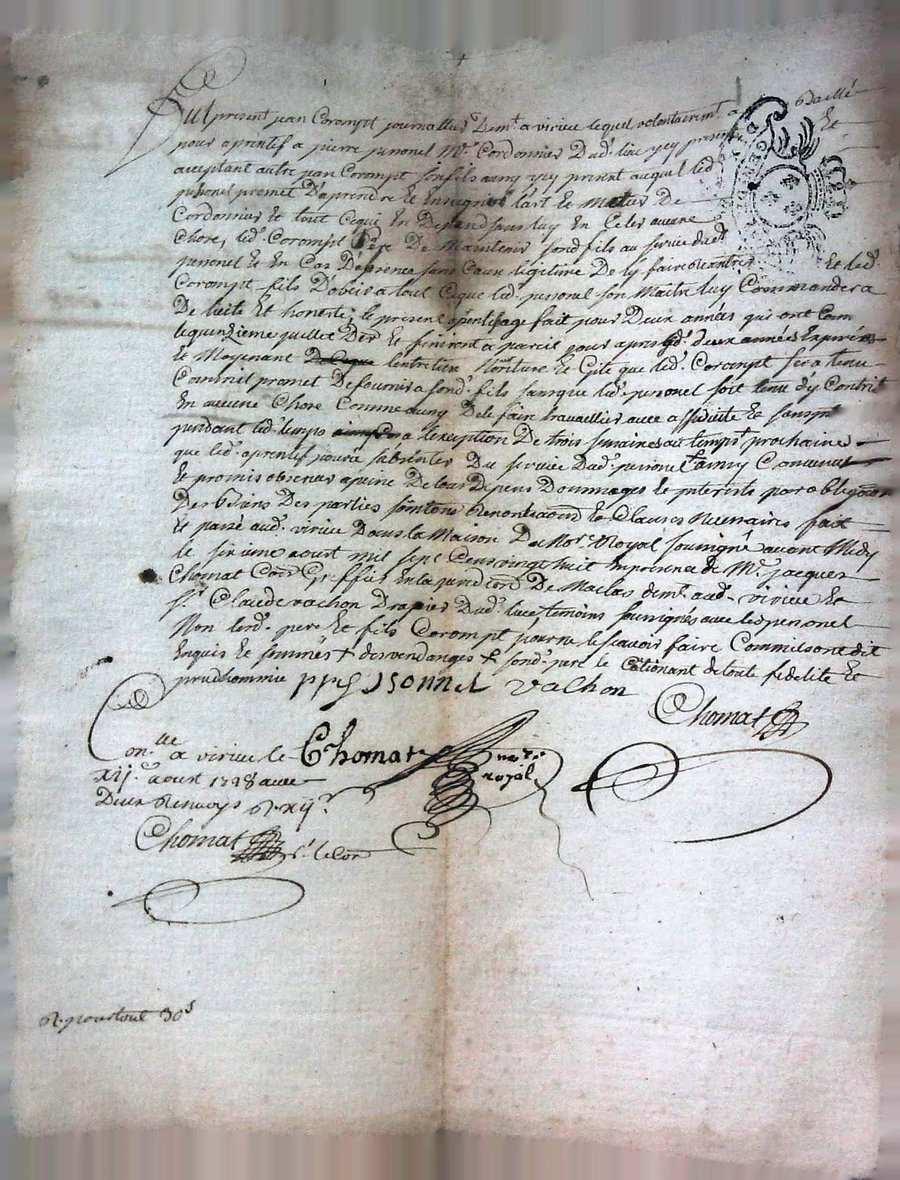 Fut present jean Corompt journallier demt a virieu lequel volontairemt a baillé
pour aprentif a pierre personel Me Cordonnier dud. lieu ycy present et
acceptant autre jean Corompt son fils aussy ycy present auquel led.
personel promet d'aprendre et enseigner l'art et metier de
Cordonnier et tout ce qui en depend sans luy en celer aucune
chose, led. Corompt pere de maintenir sond fils au service dud.
personel et en cas d'absence sans cause legitime de ly faire rentrer et led.
Corompt fils d'obeir a tout ce que led. personel son maitre luy commandera
de licite et honeste; le present aprentissage fait pour deux années qui ont com
le quinzieme juillet der et finiront a pareil jour apres lesd. deux années expirées
et moyenant l'entretien noriture et gite que led. Corompt sera tenu
comme il promet de fournir a sond. fils sans que led. personel soit tenu d'y contrib
en aucune chose comme aussy de le faire travaillier avec assiduité et sans
pendant led. temps a l'exception de trois semaines au temps prochaine
que led. aprentif pourra s'absenter du service dud. personel ainsy convenu
et promis observer a peine de tous depens dommages et interets par obligaon
des biens des parties soumissons renontiaons et clauses necessaires fait
et passé aud. virieu dans la maison de nore royal soussigné avant midy
le sixieme aout mil sept cent vingt huit en presence de Mr. jacques
Chomat Coer greffier en la juridion de Maclas demt aud. virieu et
sr. Claude vachon drapier dud. lieu temoins soussignés avec led personel
non lesd. pere et fils Corompt pour ne le scavoir faire comme ils ont dit
enquis et sommés + des vendanges + sond. pere le cationant de toute fidelité et
prudhommie p personnel vachon
Chomat
Conlle a virieu le Chomat nore
xij. aout 1728 avec royal
deux renvoys R. xij s.
Chomat
R. pour tout 30 s